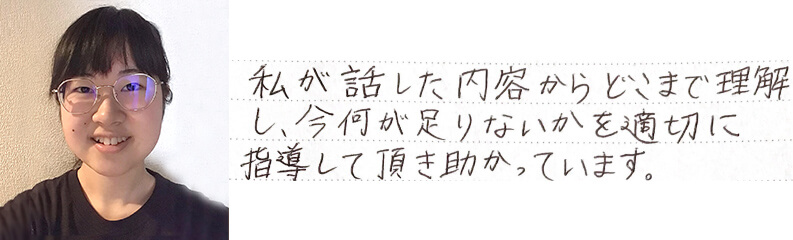 私が話した内容からどこまで理解
し、今何が足りないかを適切に
指導して頂き助かっています。